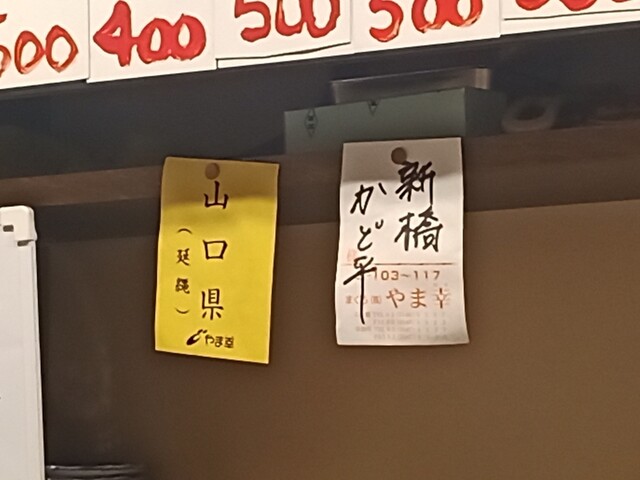 500
400
500
500
山口県
(延縄)
やま幸
新橋
かど平
103~117
まぐろ(商)やま幸